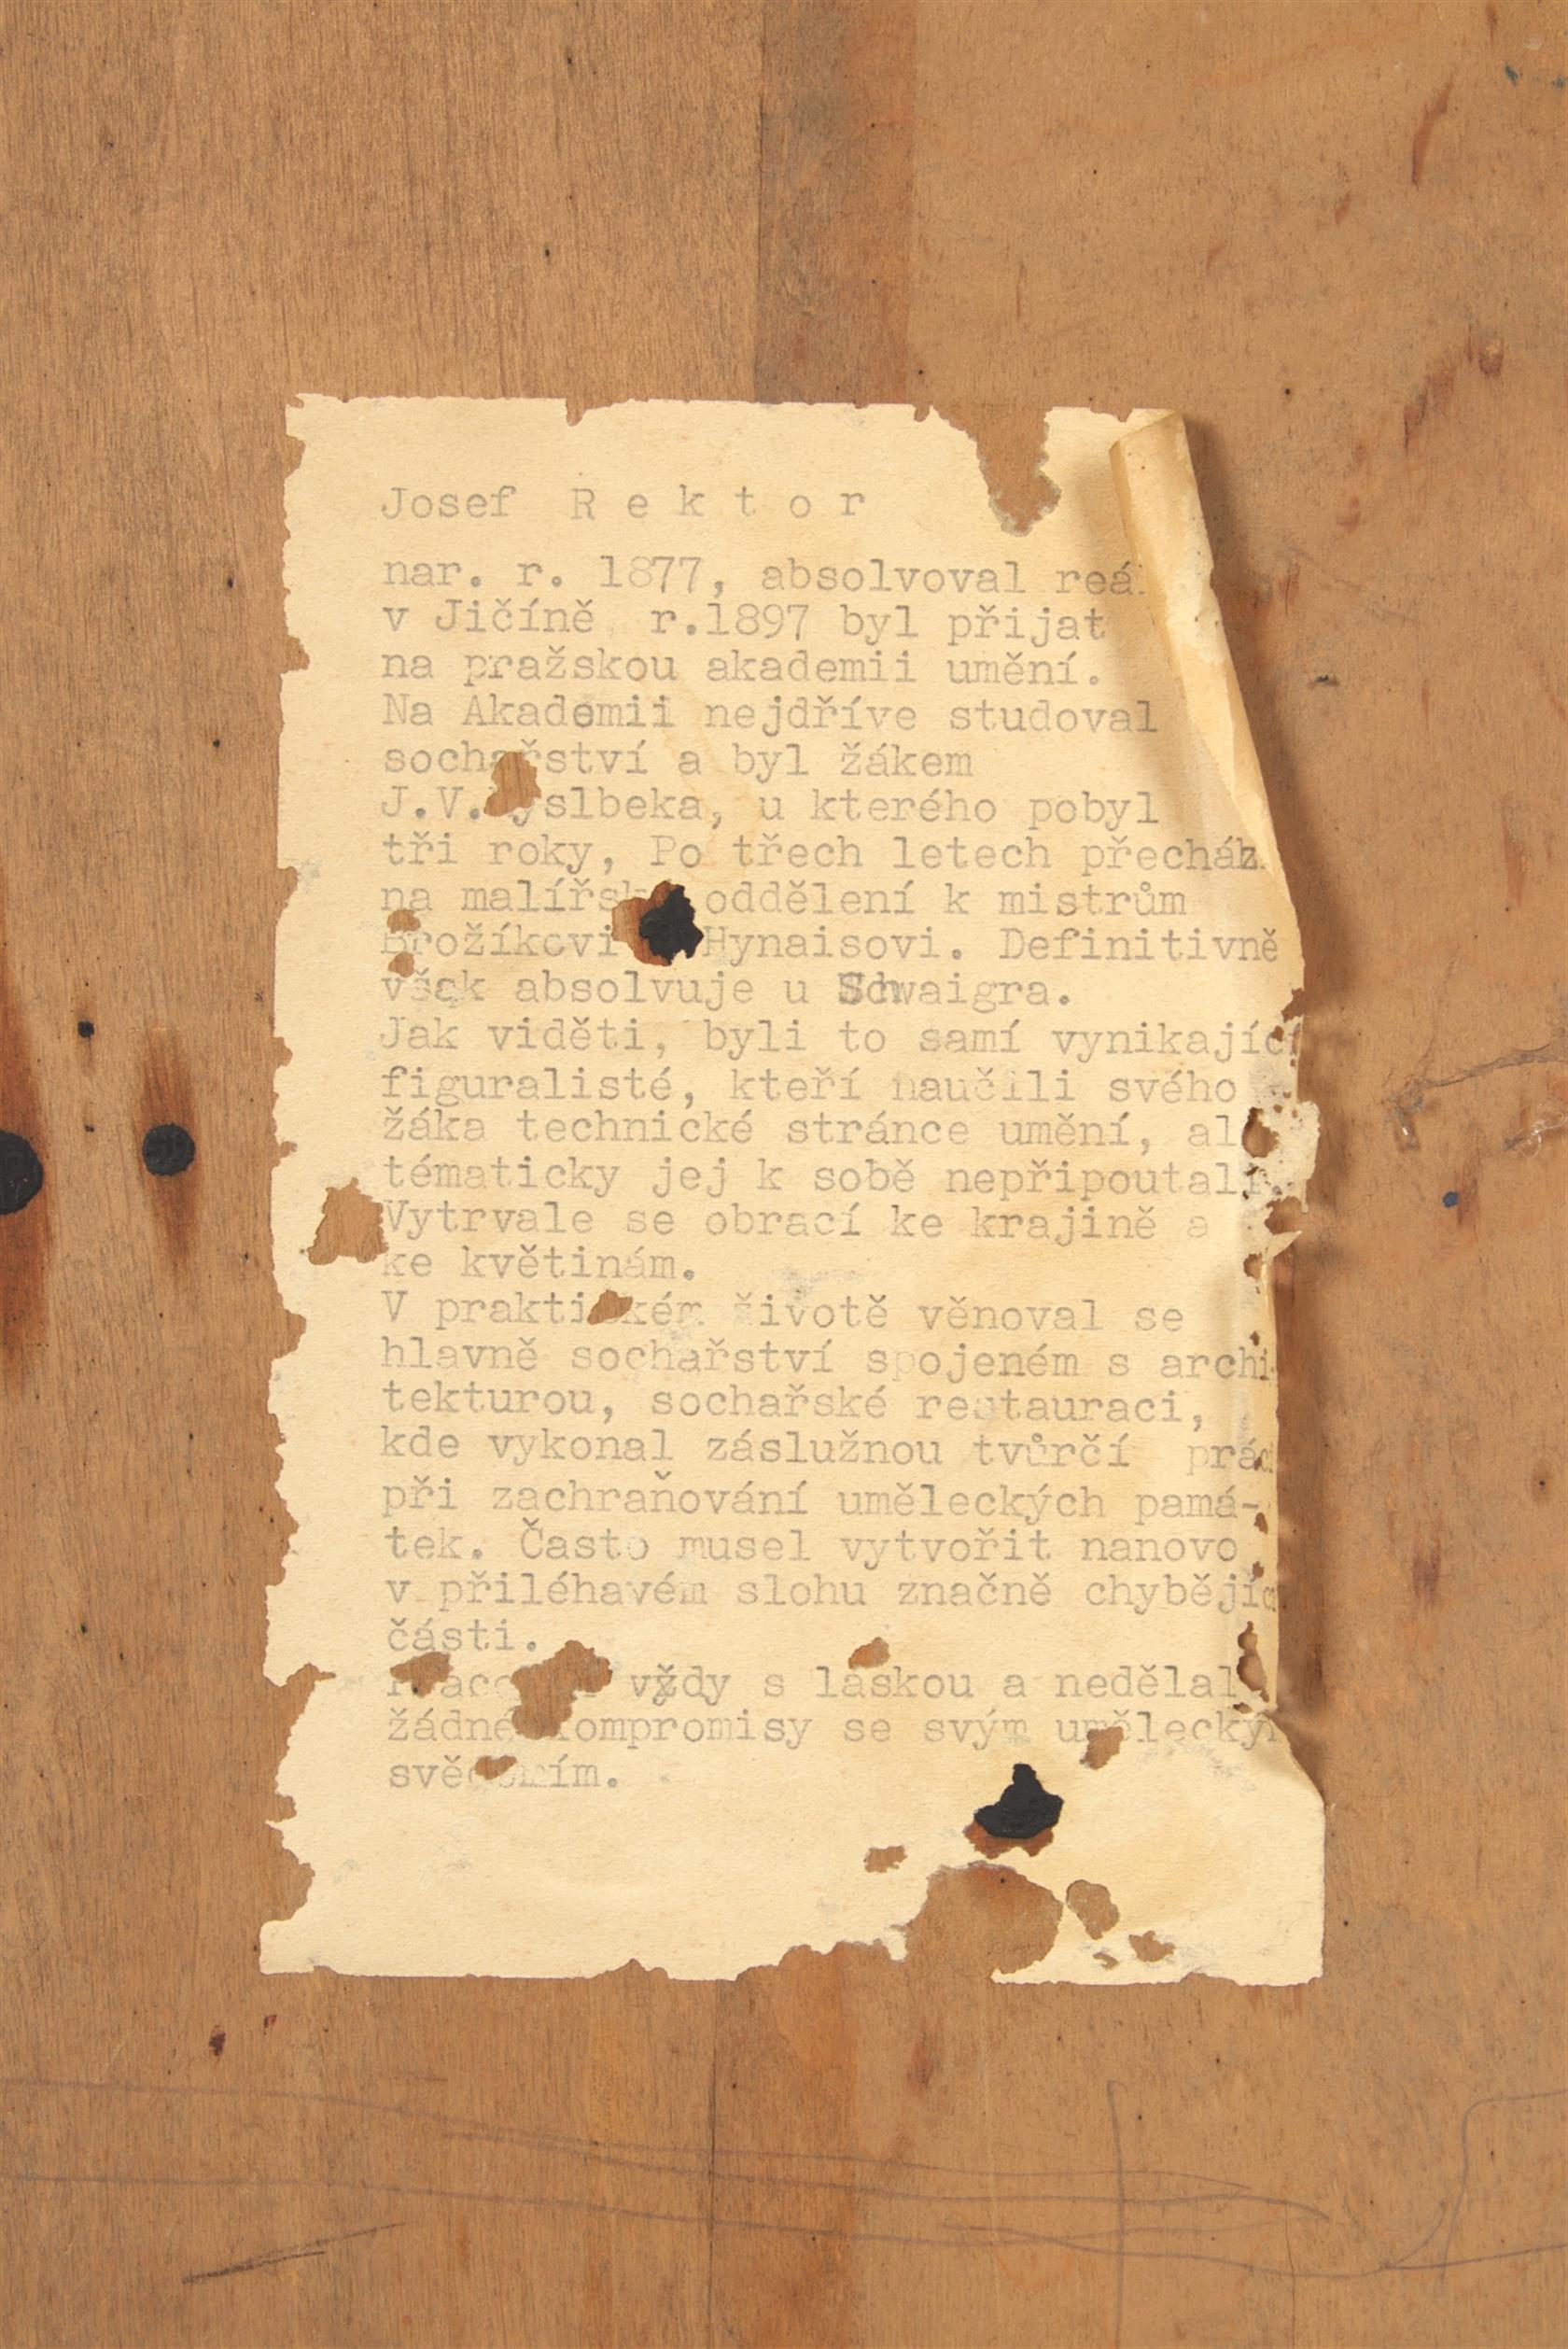 Josef R e k t o r
nar. r. 1877, absolvoval
v Jičíně r.1897 byl přijat
na pražskou akademii umění.
Na Akademii nejdříve studoval
sochařství a byl žákem
J.V.Myslbeka, u kterého pobyl
tři roky, Po třech letech
na oddělení k mistrům
Brožíkovi Hynaisovi. Definitivně
však absolvuje u Schwaigra.
Jak viděti, byli to samí vynikající
figuralisté, kteří naučili svého
žáka technické stránce umění,
tématicky jej k sobě nepřipoutali.
Vytrvale se obrací ke krajině a
ke květinám.
V praktickém životě věnoval se
hlavně sochařství spojeném s archi-
tekturou, sochařské restauraci,
kde vykonal záslužnou tvůrčí
při zachraňování uměleckých pamá-
tek. Často musel vytvořit nanovo
v přiléhavém slohu značně
části.
vždy s láskou a nedělal
žádné kompromisy se svým uměleckým
svědomím.